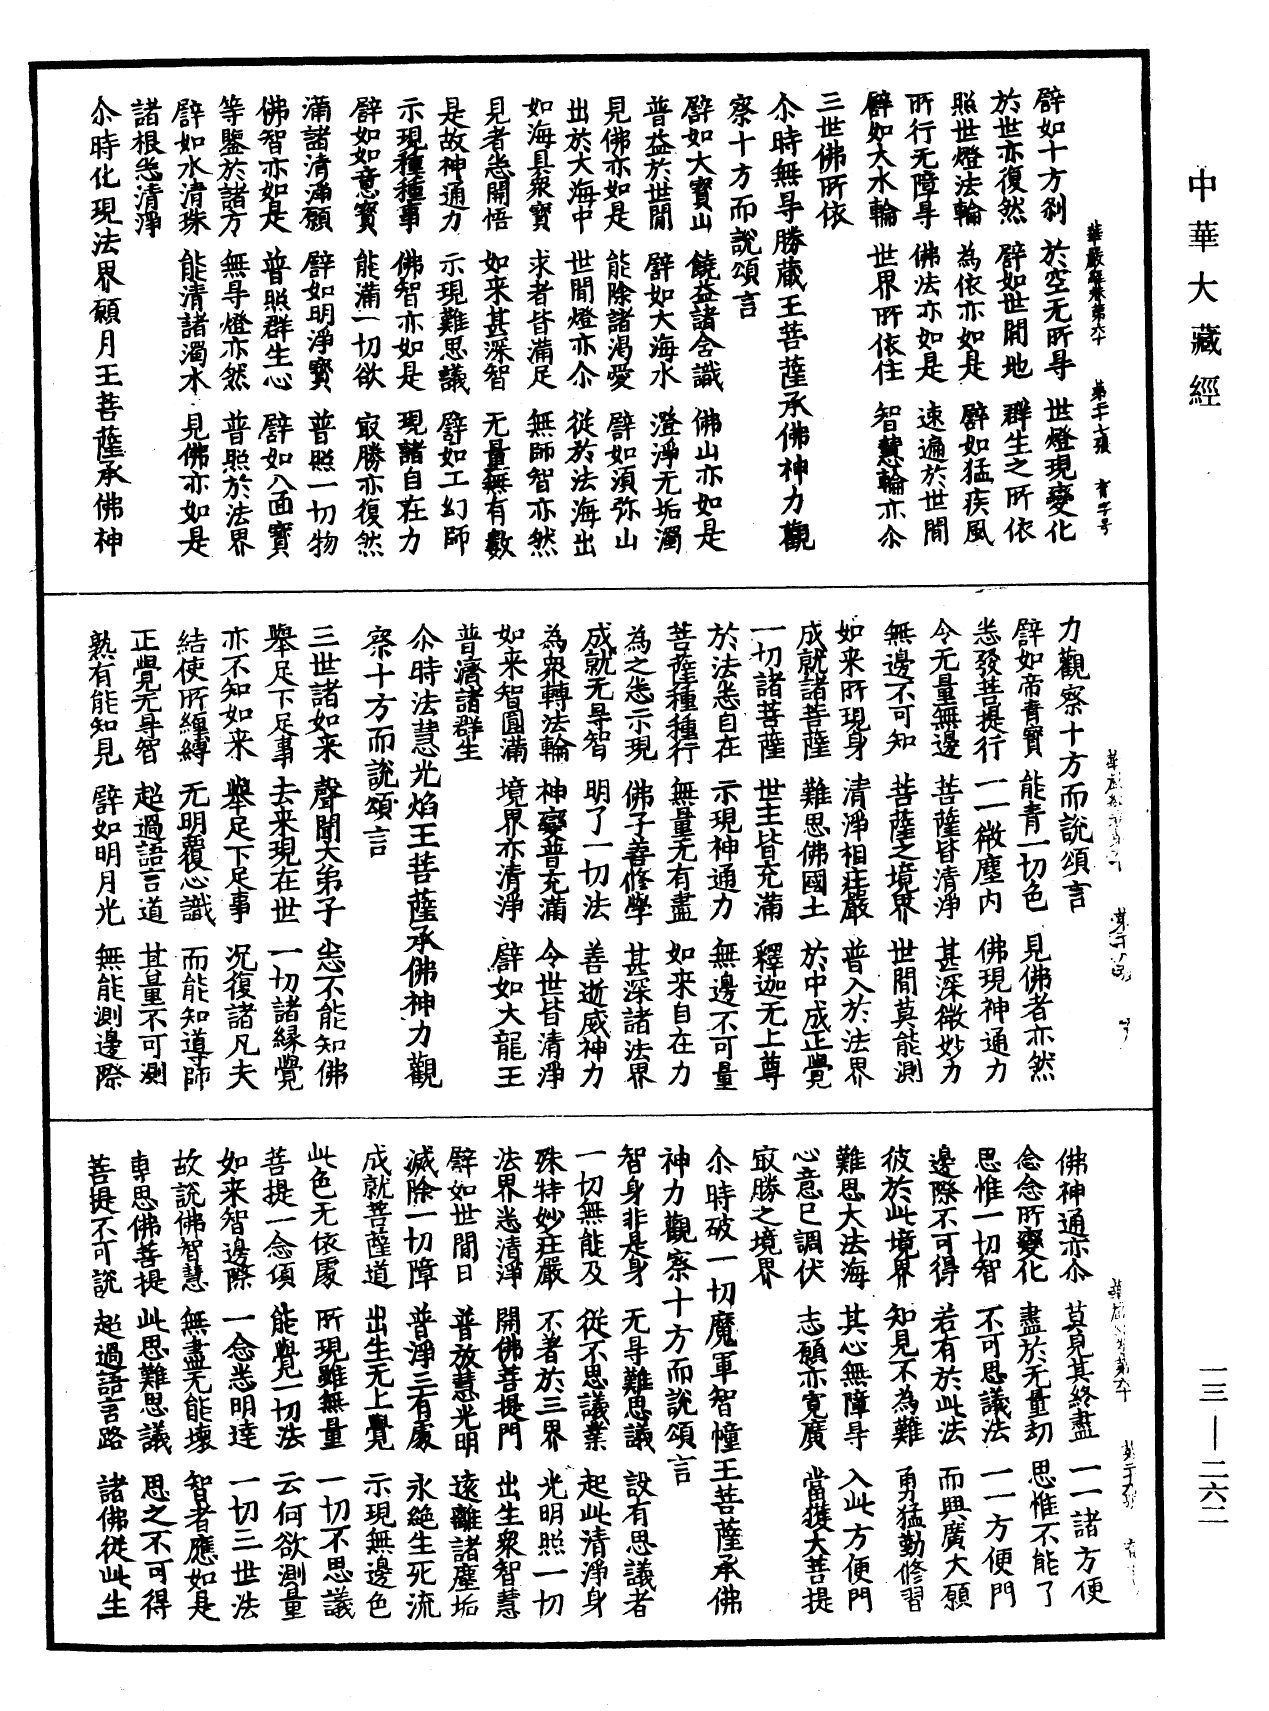 中華大藏經
華嚴經卷第六十　第二十七張　育字号
譬如十方剎　於空无所㝵　世燈現變化
於世亦復然　譬如世間地　群生之所依
照世燈法輪　為依亦如是　譬如猛疾風
所行无障㝵　佛法亦如是　速遍於世間
譬如大水輪　世界所依住　智慧輪亦尒
三世佛所依
尒時無㝵勝藏王菩薩承佛神力觀
察十方而說頌言
譬如大寶山　饒益諸含識　佛山亦如是
普益於世間　譬如大海水　澄淨无垢濁
見佛亦如是　能除諸渴愛　譬如須弥山
出於大海中　世間燈亦尒　從於法海出
如海具衆寶　求者皆滿足　無師智亦然
見者悉開悟　如来甚深智　无量無有數
是故神通力　示現難思議　譬如工幻師
示現種種事　佛智亦如是　現諸自在力
譬如如意寶　能滿一切欲　㝡勝亦復然
滿諸清淨願　譬如明淨寶　普照一切物
佛智亦如是　普照群生心　譬如八面寶
等鑒於諸方　無㝵燈亦然　普照於法界
譬如水清珠　能清諸濁水　見佛亦如是
諸根悉清淨
尒時化現法界願月王菩薩承佛神
力觀察十方而說頌言
譬如帝青寶　能青一切色　見佛者亦然
悉發菩提行　一一微塵内　佛現神通力
令无量無邊　菩薩皆清淨　甚深微妙力
無邊不可知　菩薩之境界　世間莫能測
如来所現身　清淨相莊嚴　普入於法界
成就諸菩薩　難思佛國土　於中成正覺
一切諸菩薩　世主皆充滿　釋迦无上尊
於法悉自在　示現神通力　無邊不可量
菩薩種種行　無量无有盡　如来自在力
為之悉示現　佛子善修學　甚深諸法界
成就无㝵智　明了一切法　善逝威神力
為衆轉法輪　神變普充滿　令世皆清淨
如来智圓滿　境界亦清淨　譬如大龍王
普濟諸群生
尒時法慧光焰王菩薩承佛神力觀
察十方而說頌言
三世諸如来　聲聞大弟子　悉不能知佛
舉足下足事　去来現在世　一切諸緣覺
亦不知如来　舉足下足事　況復諸凡夫
結使所纏縛　无明覆心識　而能知導師
正覺无㝵智　超過語言道　其量不可測
孰有能知見　譬如明月光　無能測邊際
佛神通亦尒　莫見其終盡　一一諸方便
念念所變化　盡於无量劫　思惟不能了
思惟一切智　不可思議法　一一方便門
邊際不可得　若有於此法　而興廣大願
彼於此境界　知見不為難　勇猛勤修習
難思大法海　其心無障㝵　入此方便門
心意已調伏　志願亦寬廣　當獲大菩提
㝡勝之境界
尒時破一切魔軍智幢王菩薩承佛
神力觀察十方而說頌言
智身非是身　无㝵難思議　設有思議者
一切無能及　從不思議業　起此清淨身
殊特妙莊嚴　不著於三界　光明照一切
法界悉清淨　開佛菩提門　出生衆智慧
譬如世間日　普放慧光明　遠離諸塵垢
滅除一切障　普淨三有處　永絶生死流
成就菩薩道　出生无上覺　示現無邊色
此色无依處　所現雖無量　一切不思議
菩提一念頃　能覺一切法　云何欲測量
如来智邊際　一念悉明達　一切三世法
故說佛智慧　無盡无能壞　智者應如是
專思佛菩提　此思難思議　思之不可得
菩提不可說　超過語言路　諸佛從此生
一三—二六二